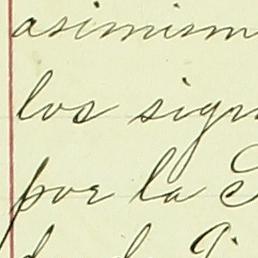 asimism
los sign
por la S